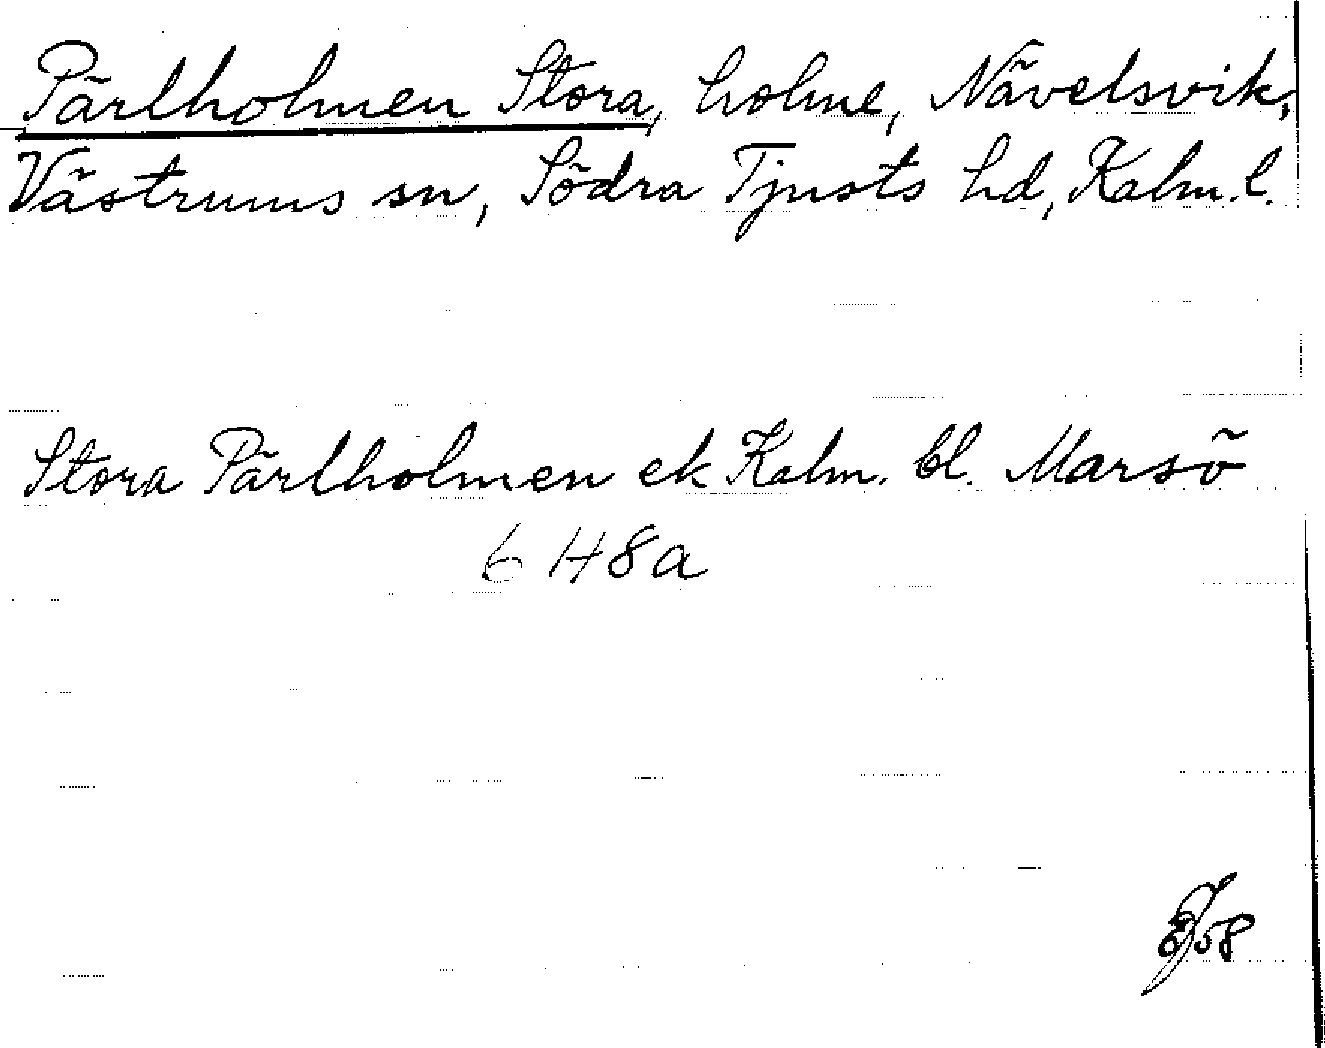 Pärlholmen Stora, holme, Nävelsvik,
Västrums sn, Södra Tjusts hd, Kalm. l.
Stora Pärlholmen ek Kalm. bl. Marsö
6 H8a
58